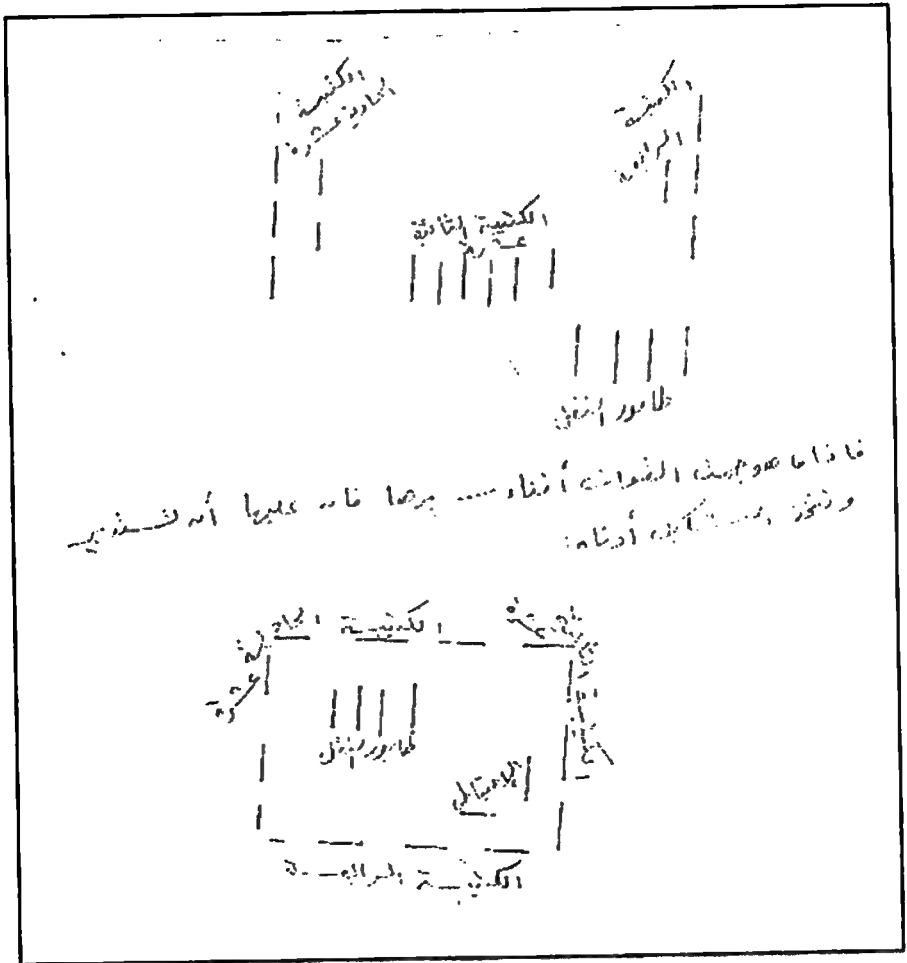 الكتيبة
الحادية عشرة
الكتيبة
الرابعة
الكتيبة الثانية
عشرة
طابور النقل
فاذا ما هوجمت القوات أثناء ..... فان عليها أن تستدير
وتتخذ أدناه:
الكتيبة الحادية
عشرة
الكتيبة الثانية عشرة
طابور النقل
الاحتياطي
الكتيبة الرابعة